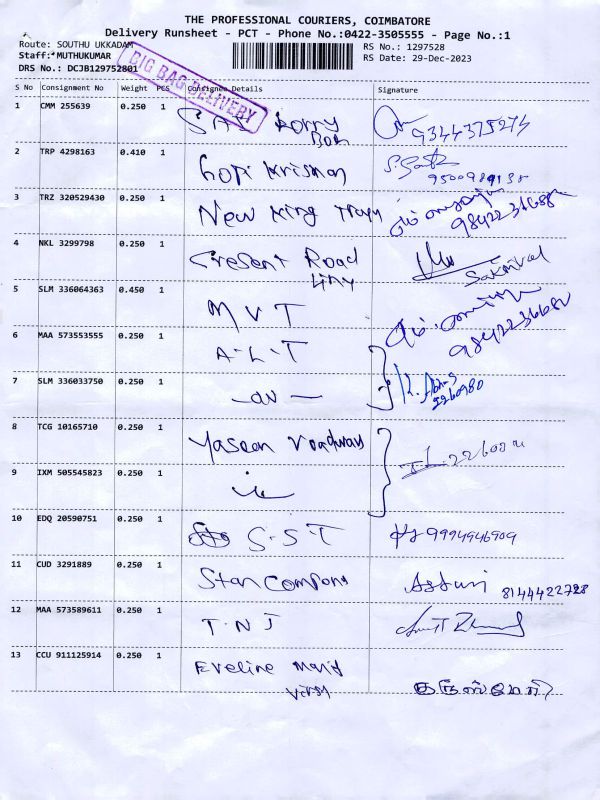 THE PROFESSIONAL COURIERS, COIMBATORE
Delivery Runsheet - PCT - Phone No.:0422-3505555 - Page No.:1
Route: SOUTHU UKKADAM
RS No.: 1297528
Staff: MUTHUKUMAR
RS Date: 29-Dec-2023
DRS No.: DCJB129752801
BIG BAG DELIVERY
S No Consignment No Weight PCS Consignee Details Signature
1 CMM 255639 0.250 1 Lorry 9344375274
2 TRP 4298163 0.410 1 Gopi Krishan
3 TRZ 320529430 0.250 1 New King
4 NKL 3299798 0.250 1 Cresent Road
5 SLM 336064363 0.450 1 M V T
6 MAA 573553555 0.250 1 A-L-T
7 SLM 336033750 0.250 1
8 TCG 10165710 0.250 1 Yaseen Roadways
9 IXM 505545823 0.250 1
10 EDQ 20590751 0.250 1 S-S-T 9994946909
11 CUD 3291889 0.250 1 Star Company 8144422728
12 MAA 573589611 0.250 1 T.N J
13 CCU 911125914 0.250 1 Eveline